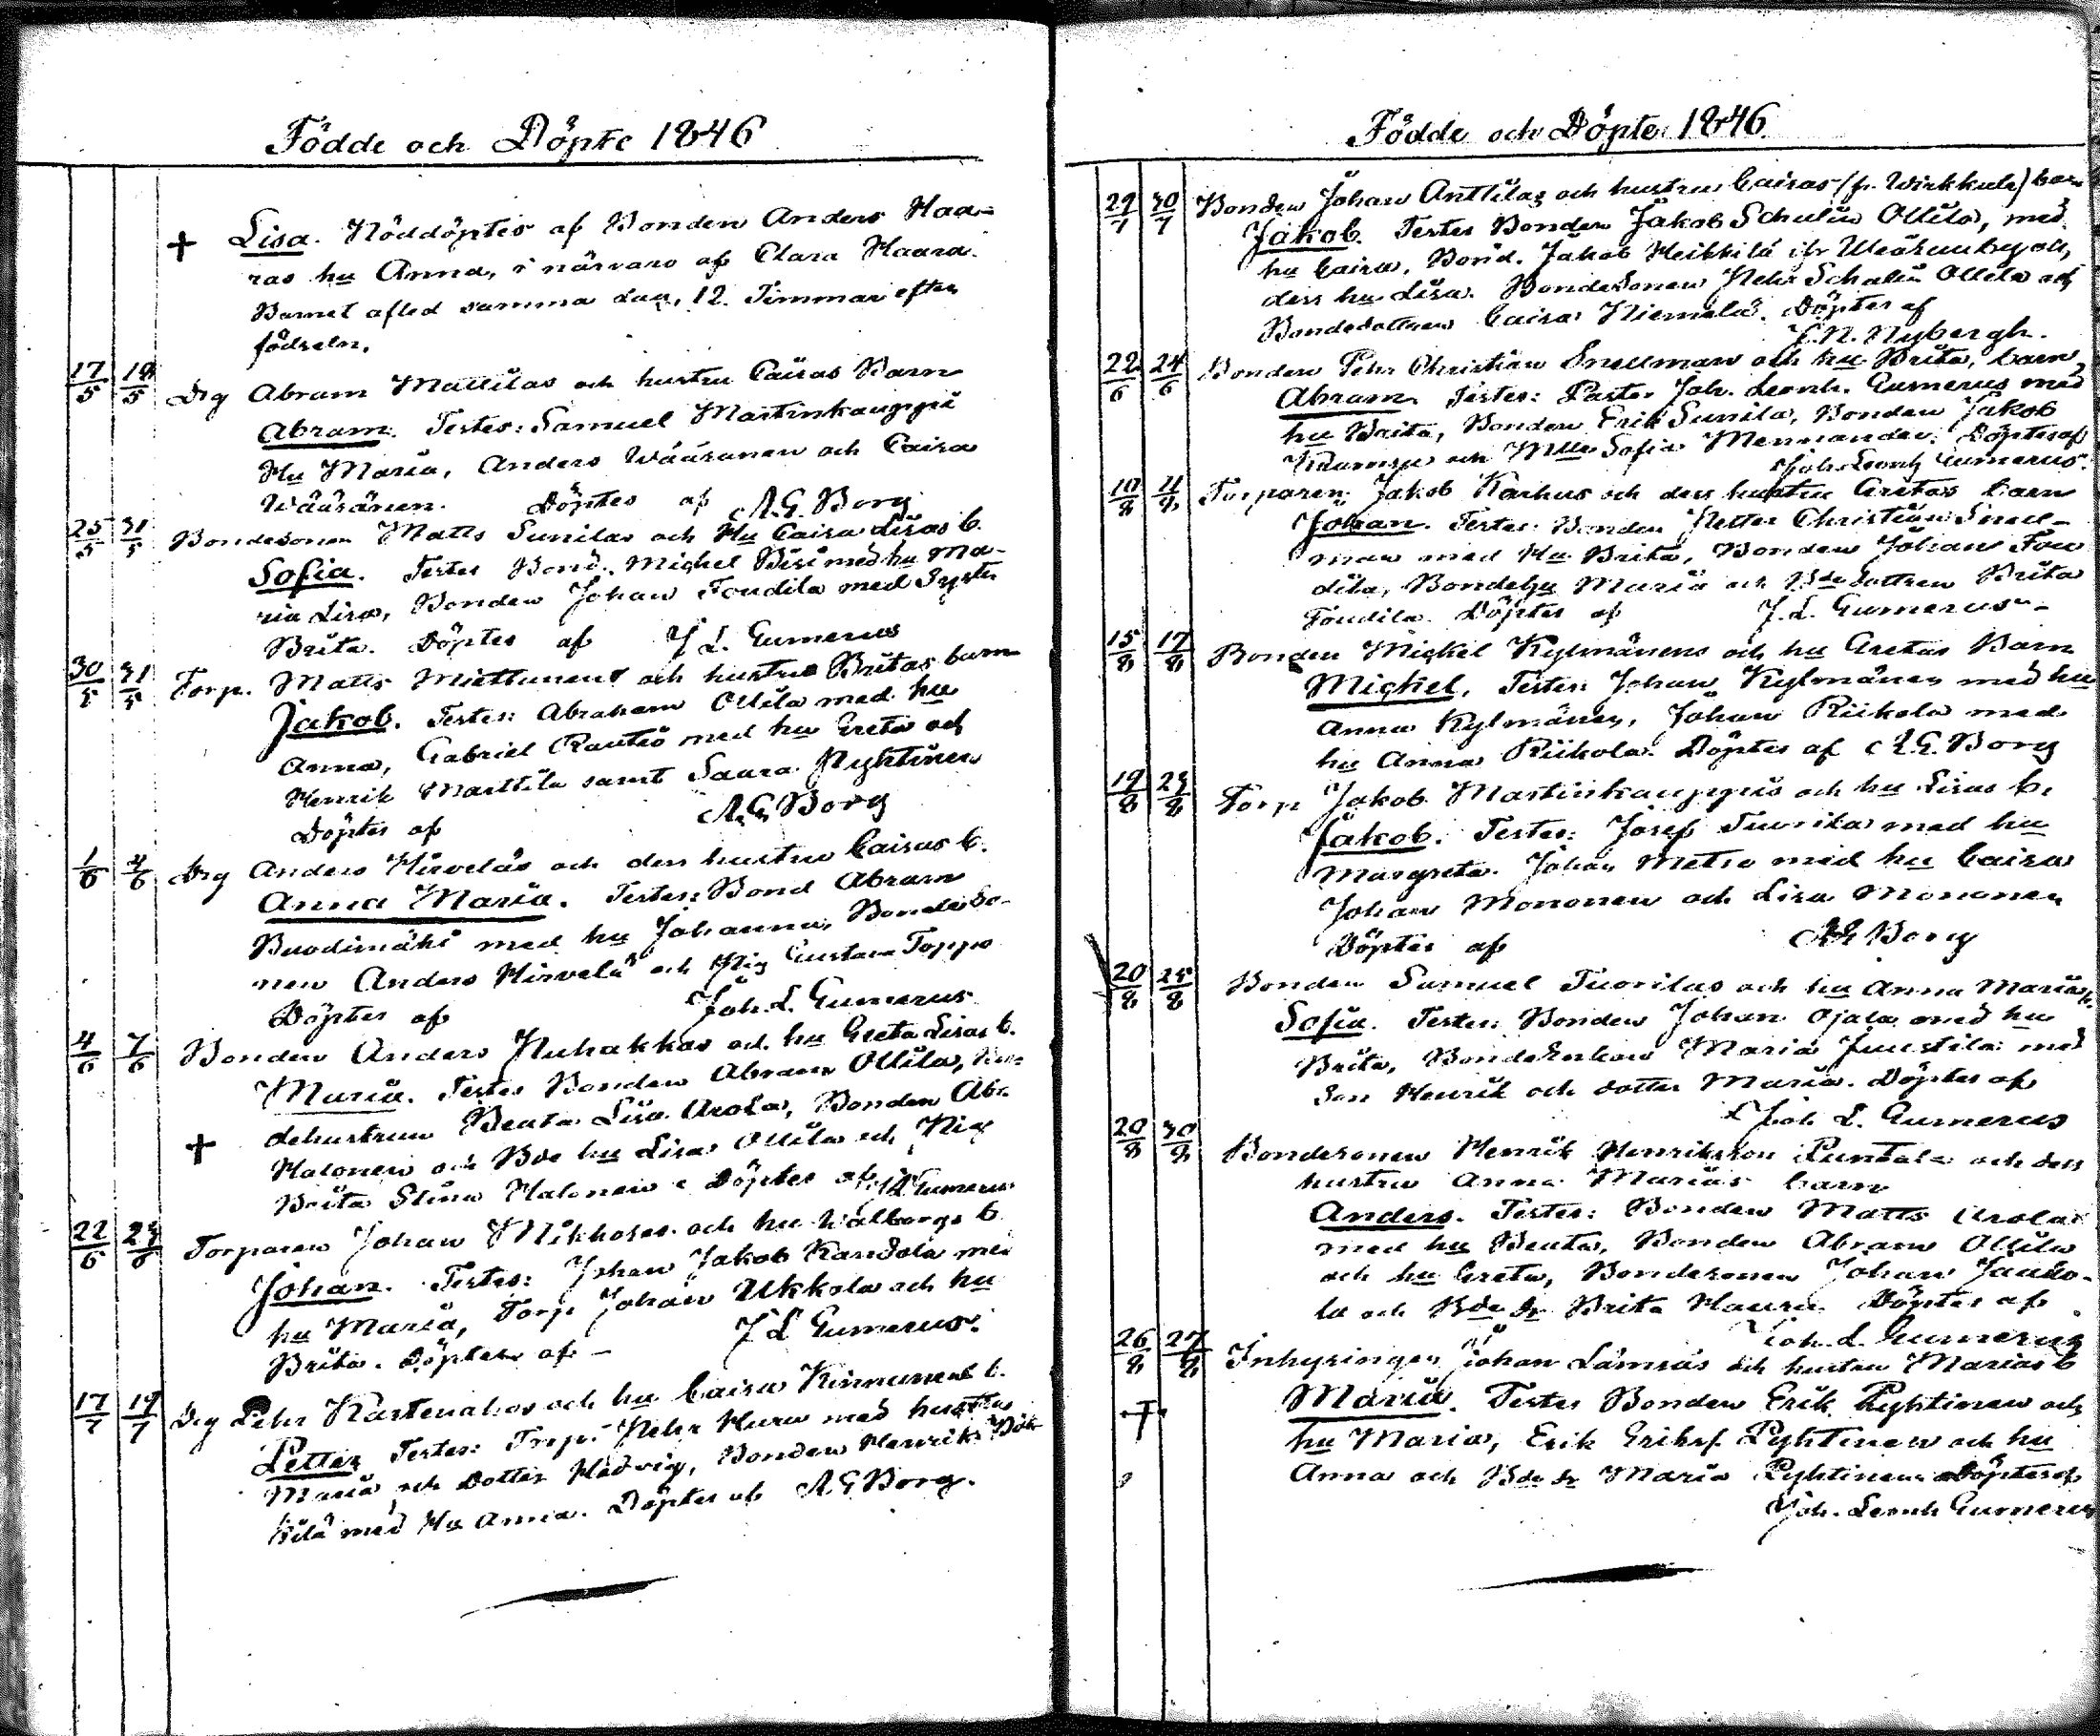 Födde och Döpte 1846
† Lisa. Nöddöptes af Bonden Anders Haa-
ras hu Anna, i närvaro af Clara Haara.
Barnet afled samma dag, 12 Timmar efter
födseln.
17/5 19/5 Drg Abram Mattilas och hustru Caisas Barn
Abram. Testes: Samuel Martinkauppi
Hu Maria, Anders Wäisänen och Caisa
Wäisänen. Döptes af A.G. Borg
25/5 31/5 Bondesonen Matts Sunilas och Hu Caisa Lisas b.
Sofia. Testes Bond. Michel Bisi med hu Ma-
ria Lisa, Bonden Johan Foudila med Syster
Brita. Döptes af J L. Gumerus
30/5 31/5 Torp. Matts Miettunens och hustru Britas barn
Jakob. Testes: Abraham Ollila med hu
Anna, Gabriel Rautio med hu Greta och
Henrik Marttila samt Saara Pyhtinen
Döptes af A.G. Borg
1/6 2/6 Drg Anders Hirveläs och dess hustru Caisas b.
Anna Maria. Testes: Bond Abram
Buodimäki med hu Johanna, Bondeso-
nen Anders Hirvelä och Pig Gustava Toppo
Döptes af Joh. L. Gumerus
4/6 7/6 Bonden Anders Huhakkas och hu Greta Lisas b.
Maria. Testes Bonden Abram Ollila,
† dehustrun Beata Lisa Arola, Bonden Abr.
Halonen och Bde hu Lisa Ollila och Pig
Brita Stina Halonen. Döptes af J L Gumerus
22/6 24/6 Torparen Johan Mikkos och hu Walborgs b
Johan. Testes: Johan Jakob Kandola med
hu Maria, Torp Johan Ukkola och hu
Brita. Döptes af - J L Gumerus.
17/7 19/7 Drg Pehr Kastenahos och hu Caisa Kinnunens b.
Petter Testes: Torp. Pehr Huru med hustru
Maria och Dotter Hedvig, Bonden Henrik
kilä med Hu Anna. Döptes af A G Borg.
Födde och Döpte 1846.
29/7 30/7 Bonden Johan Anttilas och hustru Caisas (fr. Wirkkula) barn
Jakob. Testes Bonden Jakob Schulin Ollila, med
hu Caisa, Bond. Jakob Heikkilä ifr
dess hu Lisa. Bondesonen Pehr Schulin Ollila och
Bondedottren Caisa Niemelä. Döptes af
C.N. Nybergh.
22/6 24/6 Bonden Pehr Christian Snellman och hu Brita, barn
Abram. Testes: Pastor Joh. Leonh. Gumerus med
hu Brita, Bonden Erik Sunila, Bonden Jakob
och Mlle Sofia Mennander. Döptes af
Joh. Leonh Gumerus.
10/8 11/8 Torparen Jakob Karhus och dess hustru Gretas barn
Johan. Testes: Bonden Petter Christian Snell-
man med Hu Brita, Bonden Johan Fou
dila, Bondehu Maria och Bde dottren Brita
Foudila. Döptes af J. L. Gumerus -
15/8 17/8 Bonden Michel Kylmänens och hu Gretas Barn
Michel. Testes: Johan Kylmänen med hu
Anna Kylmänen, Johan Riikola med
hu Anna Riikola. Döptes af A.G. Borg
19/8 23/8 Torp Jakob Martinkauppis och hu Lisas b.
Jakob. Testes: Josef Tuorila med hu
Margreta. Johan Metso med hu Caisa
Johan Mononen och Lisa Mononen
Döptes af A G Borg
20/8 25/8 Bonden Samuel Tuorilas och hu Anna Marias b.
Sofia. Testes: Bonden Johan Ojala med hu
Brita, Bondeenkan Maria Juustila med
Son Henrik och dotter Maria. Döptes af
Joh L. Gumerus
20/8 30/8 Bondesonen Henrik Henriksson Puntala och dess
hustru Anna Marias barn
Anders. Testes: Bonden Matts Arola
med hu Beata, Bonden Abram Ollila
och hu Greta, Bondesonen Johan Jaako-
la och Bde dr Brita Haara Döptes af
Joh. L. Gumerus
26/8 27/8 Inhysingen Johan Lämsäs och hustru Marias b
Maria. Testes Bonden Erik Pyhtinen och
hu Maria, Erik Eriks. Pyhtinen och hu
Anna och Bde dr Maria Pyhtinen Döptes af
Joh. Leonh Gumerus